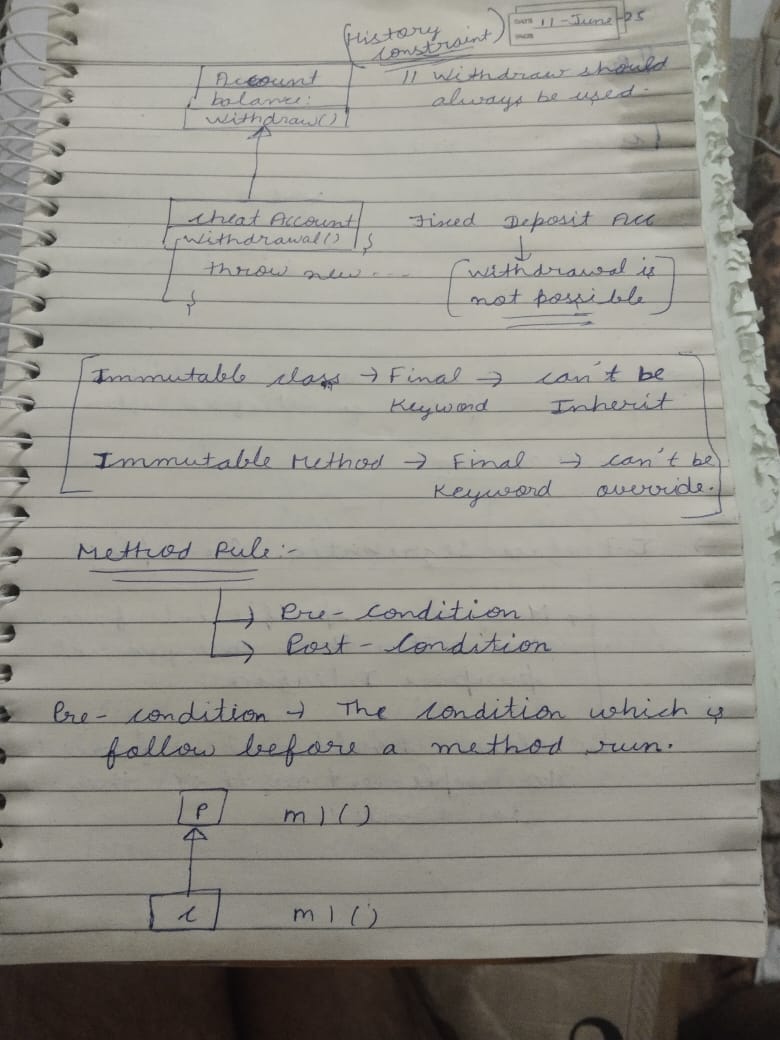 (History constraint)
DATE 11-June-25
PAGE
Account
balance:
withdraw()
// withdraw should
always be used.
cheat Account
withdrawal() {
throw new ...
}
Fixed Deposit Acc
↓
[withdrawal is
not possible]
Immutable class → Final → can't be
Keyword Inherit
Immutable Method → Final → can't be
Keyword override.
Method Rule:-
→ Pre-condition
→ Post-condition
Pre-condition → The condition which is
follow before a method run.
P m1()
c m1()